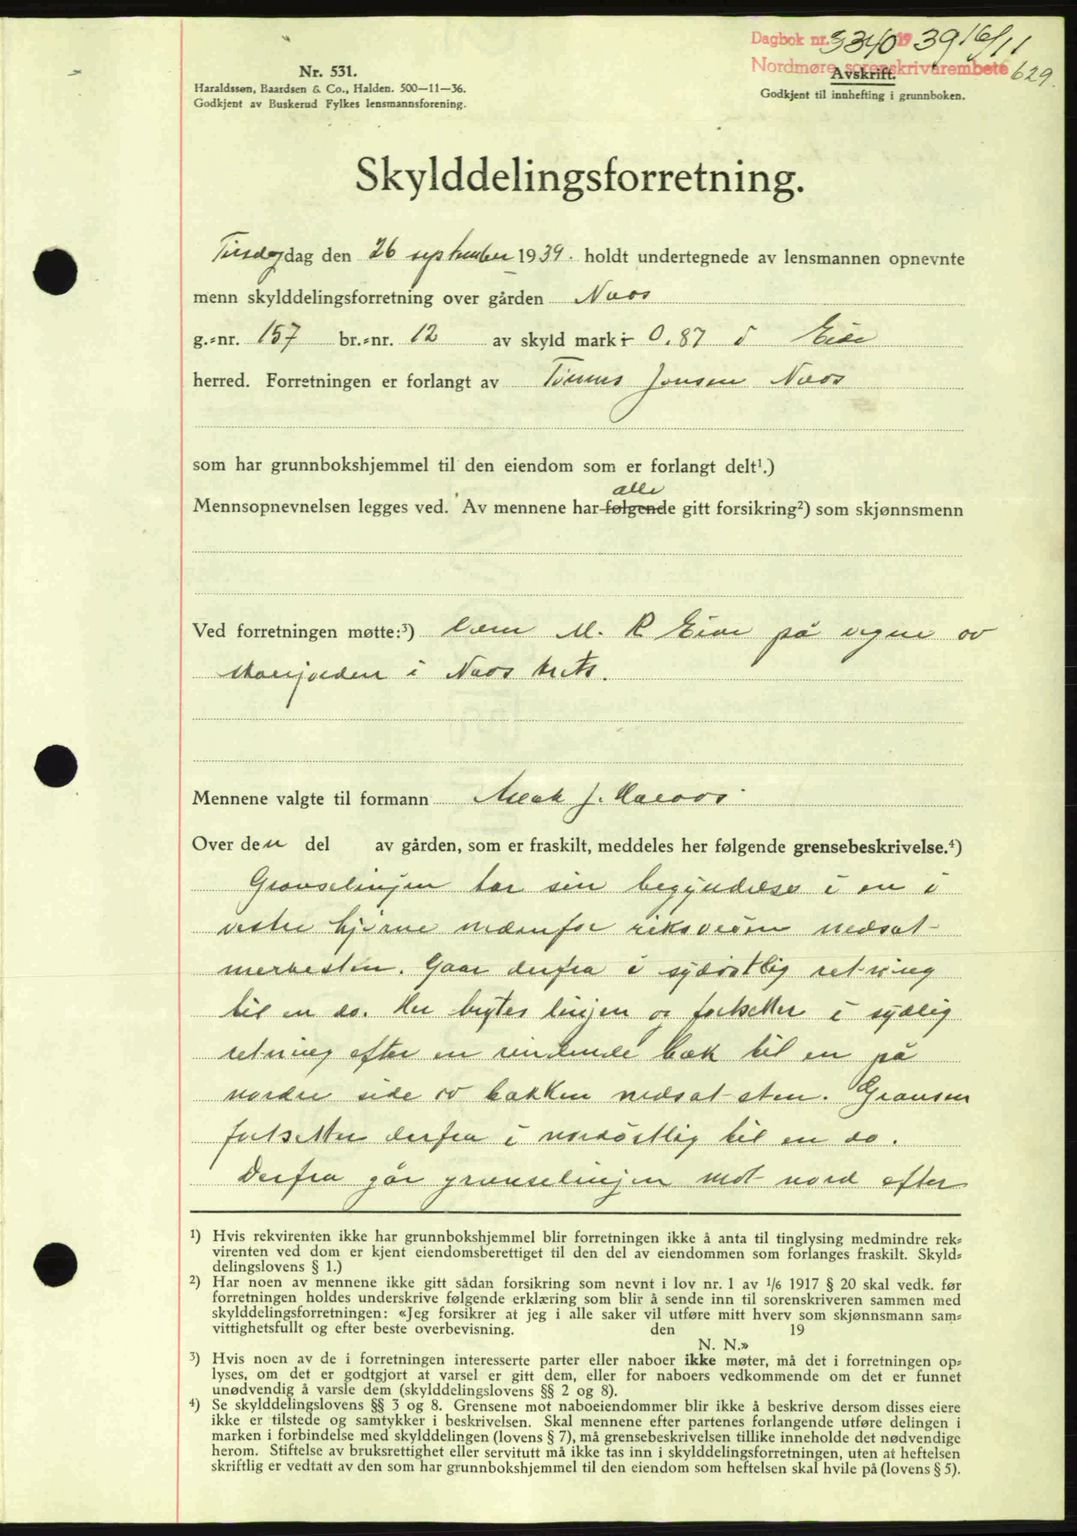 Dagbok nr. 3340 19 39 16/11
Nordmøre sorenskriverembete 629.
Nr. 531.
Haraldssøn, Baardsen & Co., Halden. 500—11—36.
Godkjent av Buskerud Fylkes lensmannsforening.
Avskrift.
Godkjent til innhefting i grunnboken.
Skylddelingsforretning.
Tirsdag dag den 26 september 1939. holdt undertegnede av lensmannen opnevnte
menn skylddelingsforretning over gården Naas
g.-nr. 157 br.-nr. 12 av skyld mark 0.87 i Eide
herred. Forretningen er forlangt av Tønnes Jonsen Naas
som har grunnbokshjemmel til den eiendom som er forlangt delt¹.)
alle
Mennsopnevnelsen legges ved. Av mennene har følgende gitt forsikring²) som skjønnsmenn
Ved forretningen møtte:³) M. R Eide på vegne av
i Naas krets.
Mennene valgte til formann J.
Over den del av gården, som er fraskilt, meddeles her følgende grensebeskrivelse.⁴)
Grænselinjen tar sin begyndelse i en i
vestre hjørne nedenfor riksveien nedsat
merkesten. Gaar derfra i sydøstlig retning
til en do. Her brytes linjen og fortsetter i sydlig
retning efter en rindende bæk til en på
nordre side av bækken nedsat sten. Grænsen
fortsetter derfra i nordøstlig til en do.
Derfra går grænselinjen mot nord efter
¹) Hvis rekvirenten ikke har grunnbokshjemmel blir forretningen ikke å anta til tinglysing medmindre rek-
virenten ved dom er kjent eiendomsberettiget til den del av eiendommen som forlanges fraskilt. Skyld-
delingslovens § 1.)
²) Har noen av mennene ikke gitt sådan forsikring som nevnt i lov nr. 1 av 1/6 1917 § 20 skal vedk. før
forretningen holdes underskrive følgende erklæring som blir å sende inn til sorenskriveren sammen med
skylddelingsforretningen: «Jeg forsikrer at jeg i alle saker vil utføre mitt hverv som skjønnsmann sam-
vittighetsfullt og efter beste overbevisning. den 19
N. N.»
³) Hvis noen av de i forretningen interesserte parter eller naboer ikke møter, må det i forretningen op-
lyses, om det er godtgjort at varsel er gitt dem, eller for naboers vedkommende om det er funnet
unødvendig å varsle dem (skylddelingslovens §§ 2 og 8).
⁴) Se skylddelingslovens §§ 3 og 8. Grensene mot naboeiendommer blir ikke å beskrive dersom disses eiere
ikke er tilstede og samtykker i beskrivelsen. Skal mennene efter partenes forlangende utføre delingen i
marken i forbindelse med skylddelingen (lovens § 7), må grensebeskrivelsen tillike inneholde det nødvendige
herom. Stiftelse av bruksrettighet eller servitutt må ikke tas inn i skylddelingsforretningen, uten at heftelsen
skriftlig er vedtatt av den som har grunnbokshjemmel til den eiendom som heftelsen skal hvile på (lovens § 5).